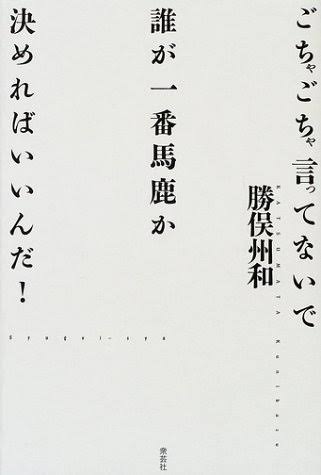 ごちゃごちゃ言ってないで
誰が一番馬鹿か
決めればいいんだ！
勝俣州和
KATSUMATA Kunikazu
Syugei-sya
衆芸社